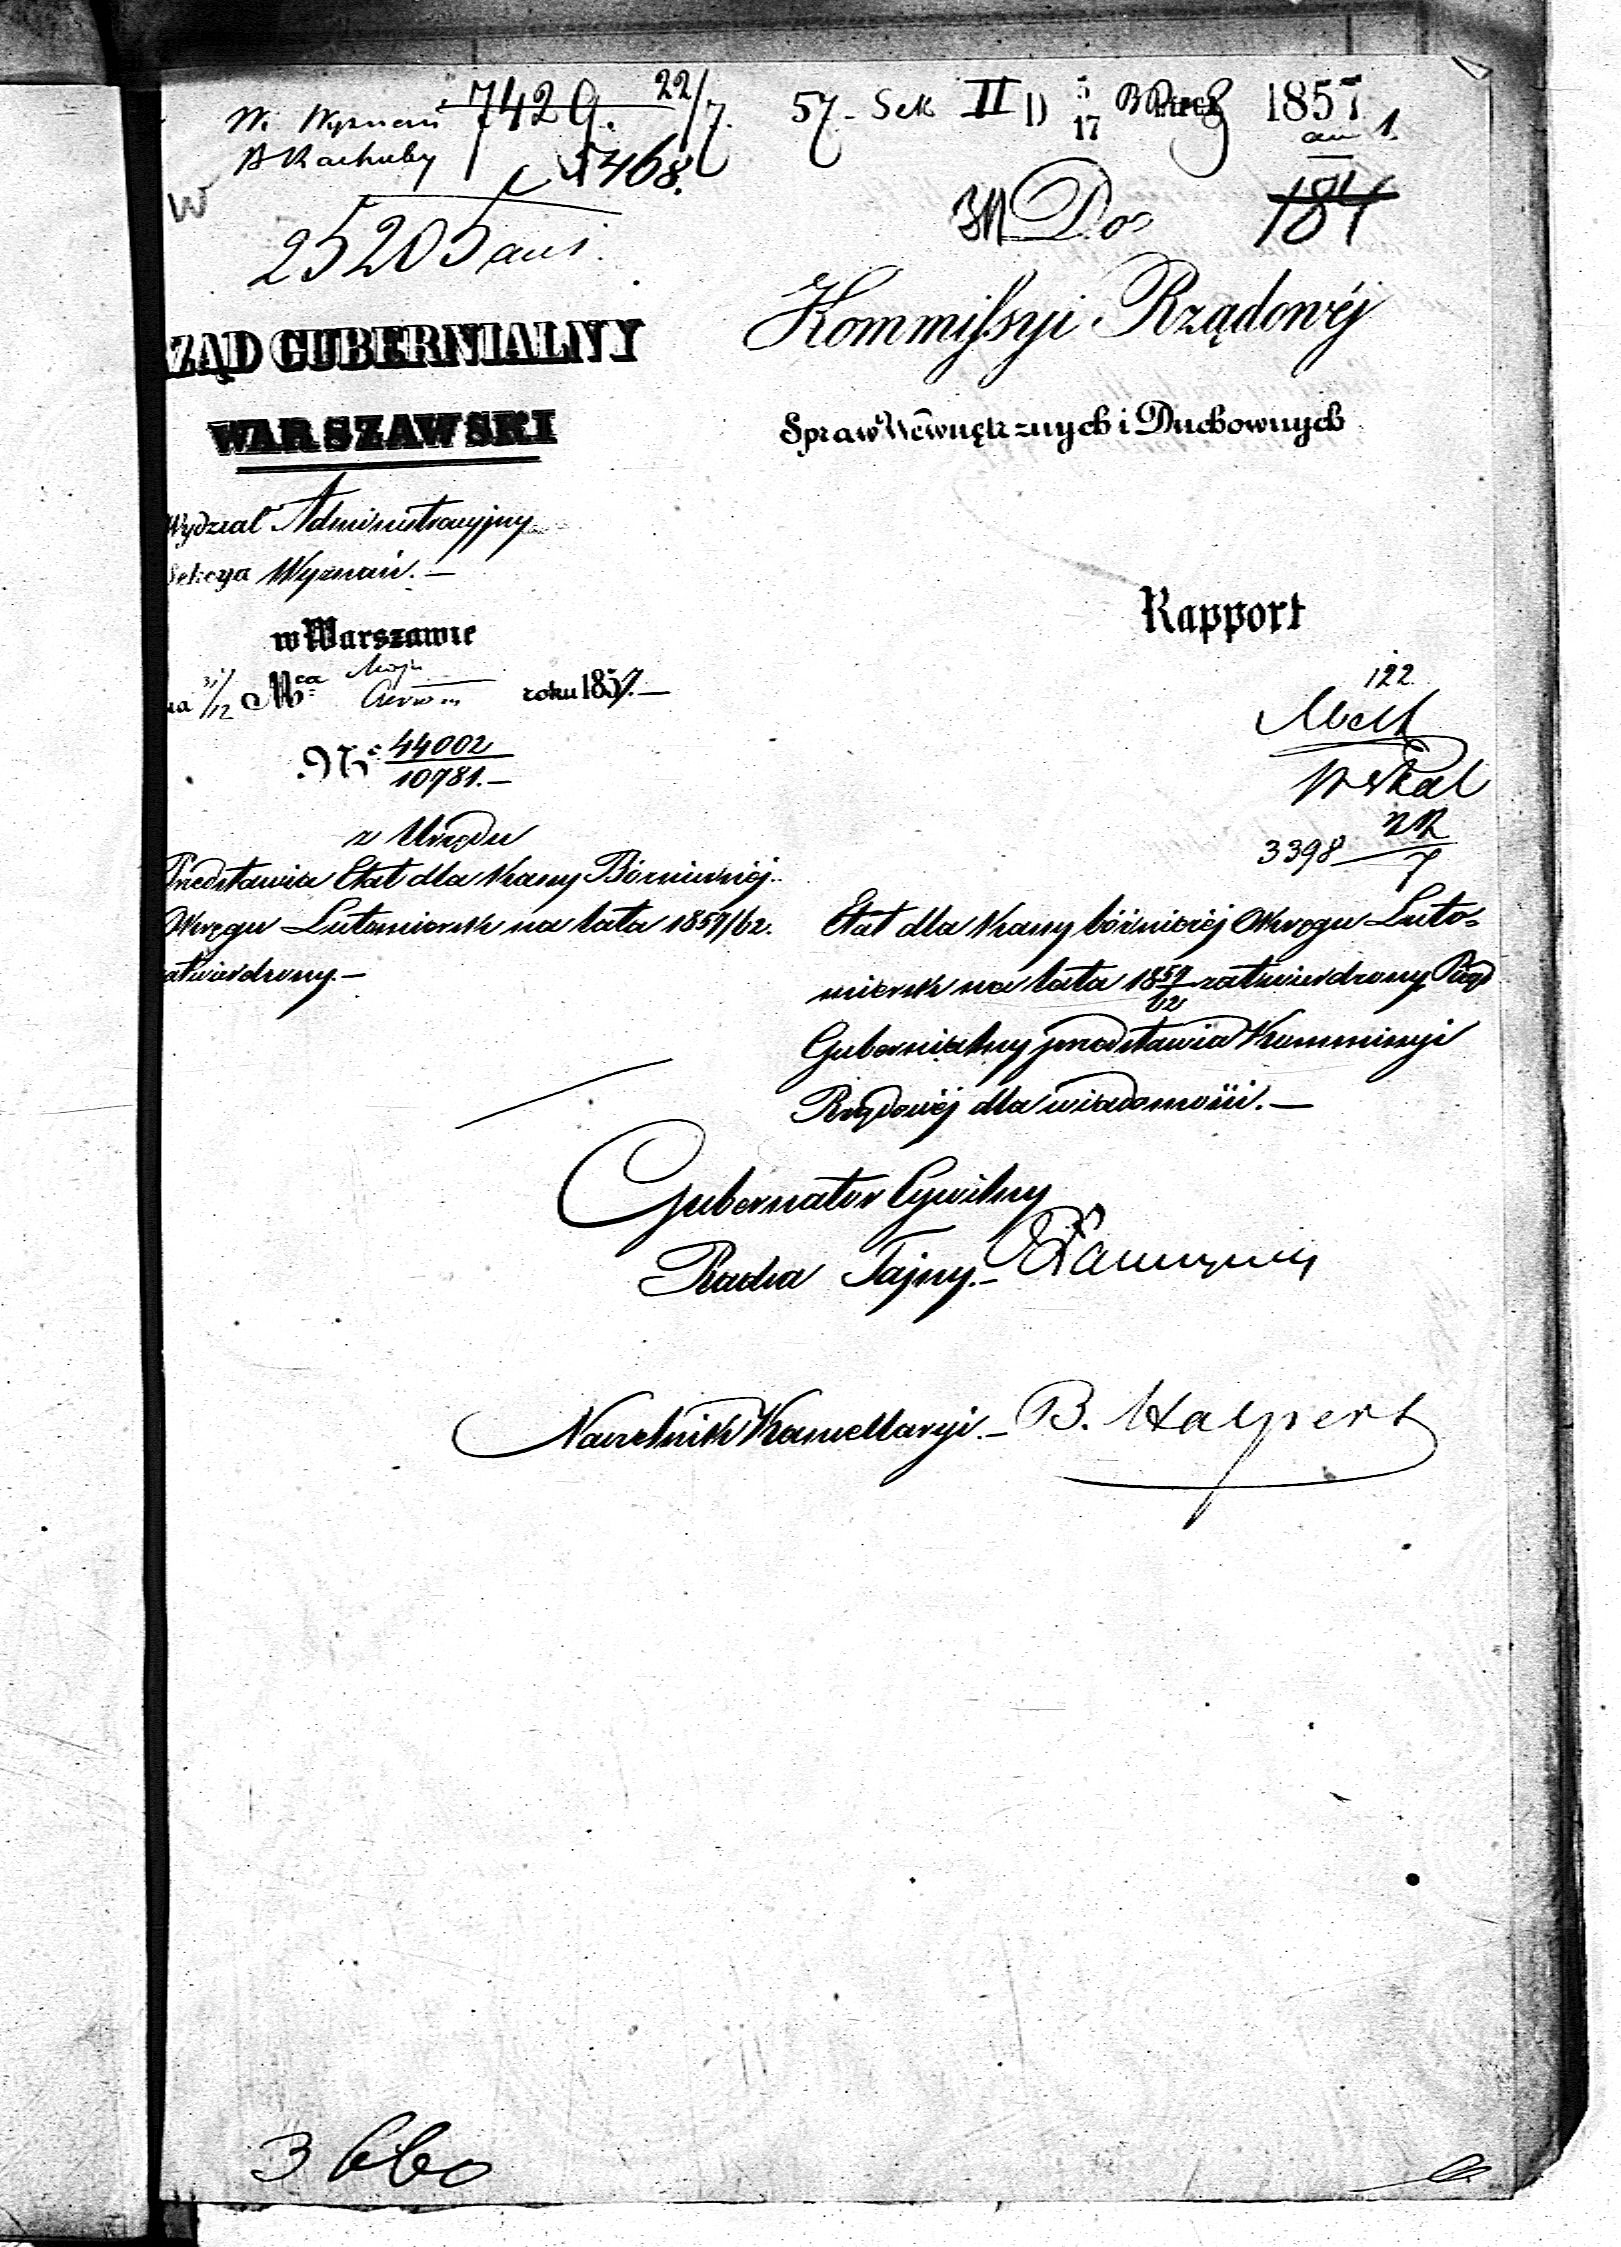 W. Wyznań 7429. 22/7.
B Rachuby 5468.
W
25205 aus.
57 - Sek II D 5/17 1857
an 1.
Do 184
RZĄD GUBERNIALNY
WARSZAWSKI
Kommissyi Rządowéj
Spraw Wewnętrznych i Duchownych
Wydział Administracyjny
Sekcya Wyznań. —
w Warszawie
31/12 Mca Maja / Czerw. roku 1857. —
Rapport
122
№ 44002 / 10781. —
3398 7
z Urzędu
Przedstawia Etat dla Kassy Bóżniczéj
Okręgu Lutomiersk na lata 1857/62.
zatwierdzony. —
Etat dla Kassy bóżniczéj Okręgu Luto=
miersk na lata 1857/62 zatwierdzony Rząd
Gubernialny przedstawia Kommissyi
Rządowéj dla wiadomości. —
Gubernator Cywilny
Radca Tajny. —
Naczelnik Kancellaryi. — B. Halpert
3660